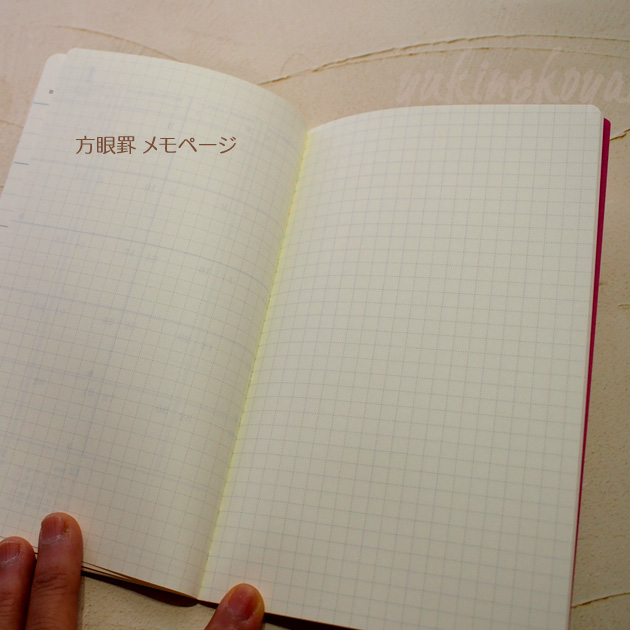 yukinekoya
方眼罫 メモページ